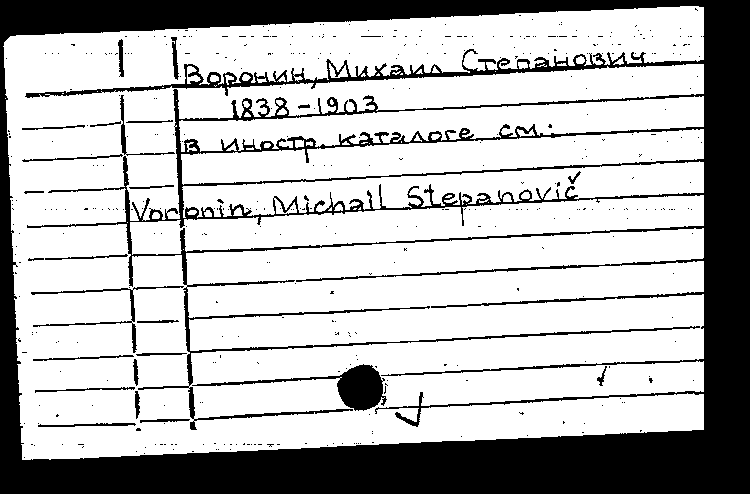 Воронин, Михаил Степанович
1838-1903
в иностр. каталоге см.:
Voronin, Michail Stepanovič